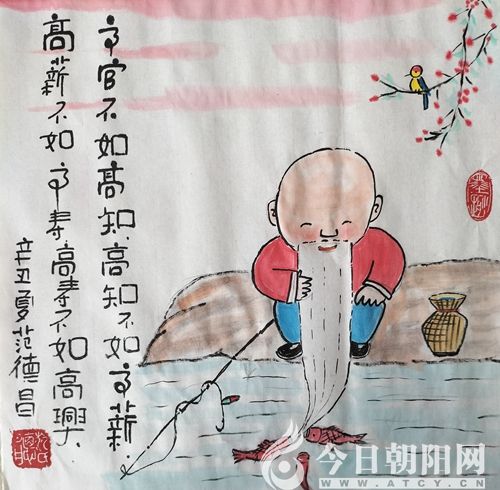 高官不如高知.高知不如高薪.
高薪不如高寿高寿不如高興.
辛丑夏范德昌
今日朝阳网
WWW.ATCY.CN